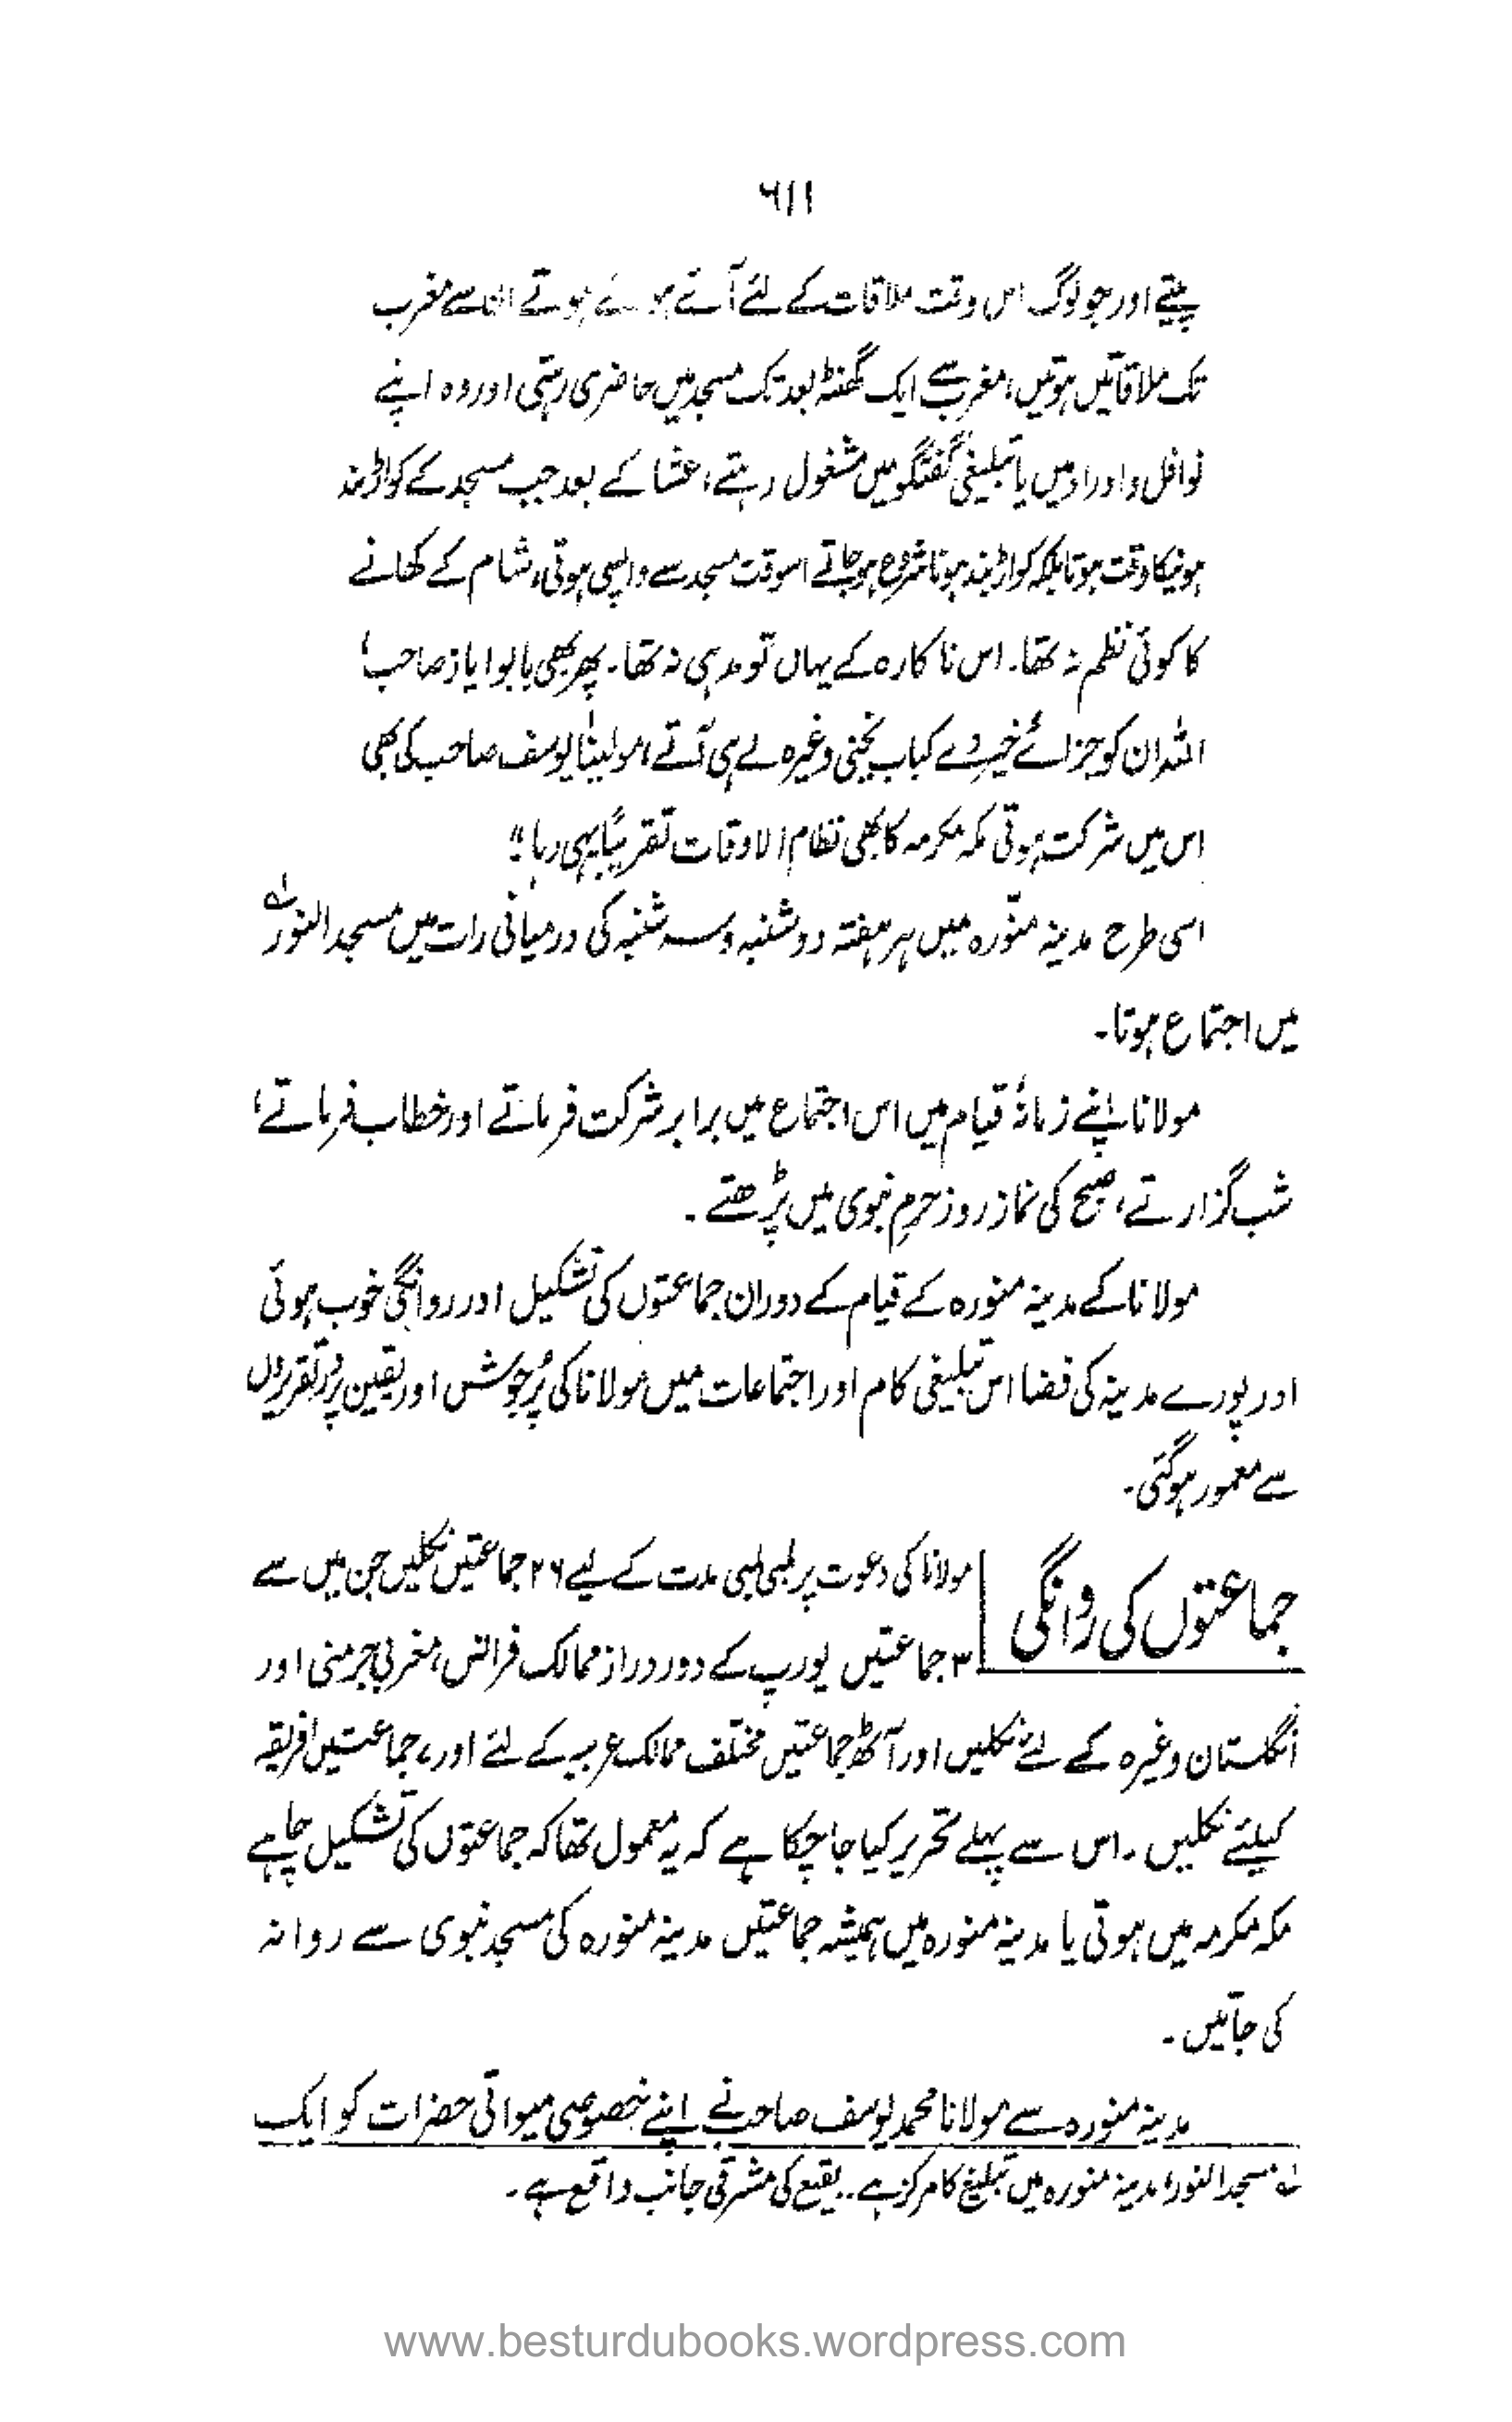 ۶۱۱
پیتے اور جو لوگ اس وقت ملاقات کے لئے آئے ہوئے ہوتے ان سے مغرب
تک ملاقاتیں ہوتیں، مغرب سے ایک گھنٹہ بعد تک مسجد میں حاضری رہتی اور وہ اپنے
نوافل واوراد میں یا تبلیغی گفتگو میں مشغول رہتے، عشا کے بعد جب مسجد کے کواڑ بند
ہونیکا وقت ہوتا بلکہ کواڑ بند ہونا شروع ہو جاتے اسوقت مسجد سے واپسی ہوتی، شام کے کھانے
کا کوئی نظم نہ تھا۔ اس ناکارہ کے یہاں تو مد ہی نہ تھا۔ پھر بھی بابو ایاز صاحب،
اللہ ان کو جزائے خیر دے کباب یخنی وغیرہ لے ہی آتے، مولینٰا یوسف صاحب کی بھی
اس میں شرکت ہوتی مکہ مکرمہ کا بھی نظام الاوقات تقریبًا یہی رہا "
اسی طرح مدینہ منوّرہ میں ہر ہفتہ دوشنبہ وسہ شنبہ کی درمیانی رات میں مسجد النور لہ
میں اجتماع ہوتا۔
مولانا اپنے زمانۂ قیام میں اس اجتماع میں برابر شرکت فرماتے اور خطاب فرماتے،
شب گزارتے، صبح کی نماز روز حرمِ نبوی میں پڑھتے۔
مولانا کے مدینہ منورہ کے قیام کے دوران جماعتوں کی تشکیل اور روانگی خوب ہوئی
اور پورے مدینہ کی فضا اس تبلیغی کام اور اجتماعات میں مولانا کی پُرجوش اور یقین پرور تقریروں
سے معمور ہو گئی۔
جماعتوں کی روانگی مولانا کی دعوت پر لمبی لمبی مدت کے لیے ۲۶ جماعتیں نکلیں جن میں سے
۳ جماعتیں یورپ کے دور دراز ممالک فرانس، مغربی جرمنی اور
انگلستان وغیرہ کے لئے نکلیں اور آٹھ جماعتیں مختلف ممالک عربیہ کے لئے اور ۷ جماعتیں افریقہ
کیلئے نکلیں۔ اس سے پہلے تحریر کیا جا چکا ہے کہ یہ معمول تھا کہ جماعتوں کی تشکیل چاہے
مکہ مکرمہ میں ہوتی یا مدینہ منورہ میں ہمیشہ جماعتیں مدینہ منورہ کی مسجد نبوی سے روانہ
کی جاتیں۔
مدینہ منورہ سے مولانا محمد یوسف صاحب نے اپنے خصوصی میواتی حضرات کو ایک
لہ مسجد النور، مدینہ منورہ میں تبلیغ کا مرکز ہے۔ بقیع کی مشرقی جانب واقع ہے۔
www.besturdubooks.wordpress.com